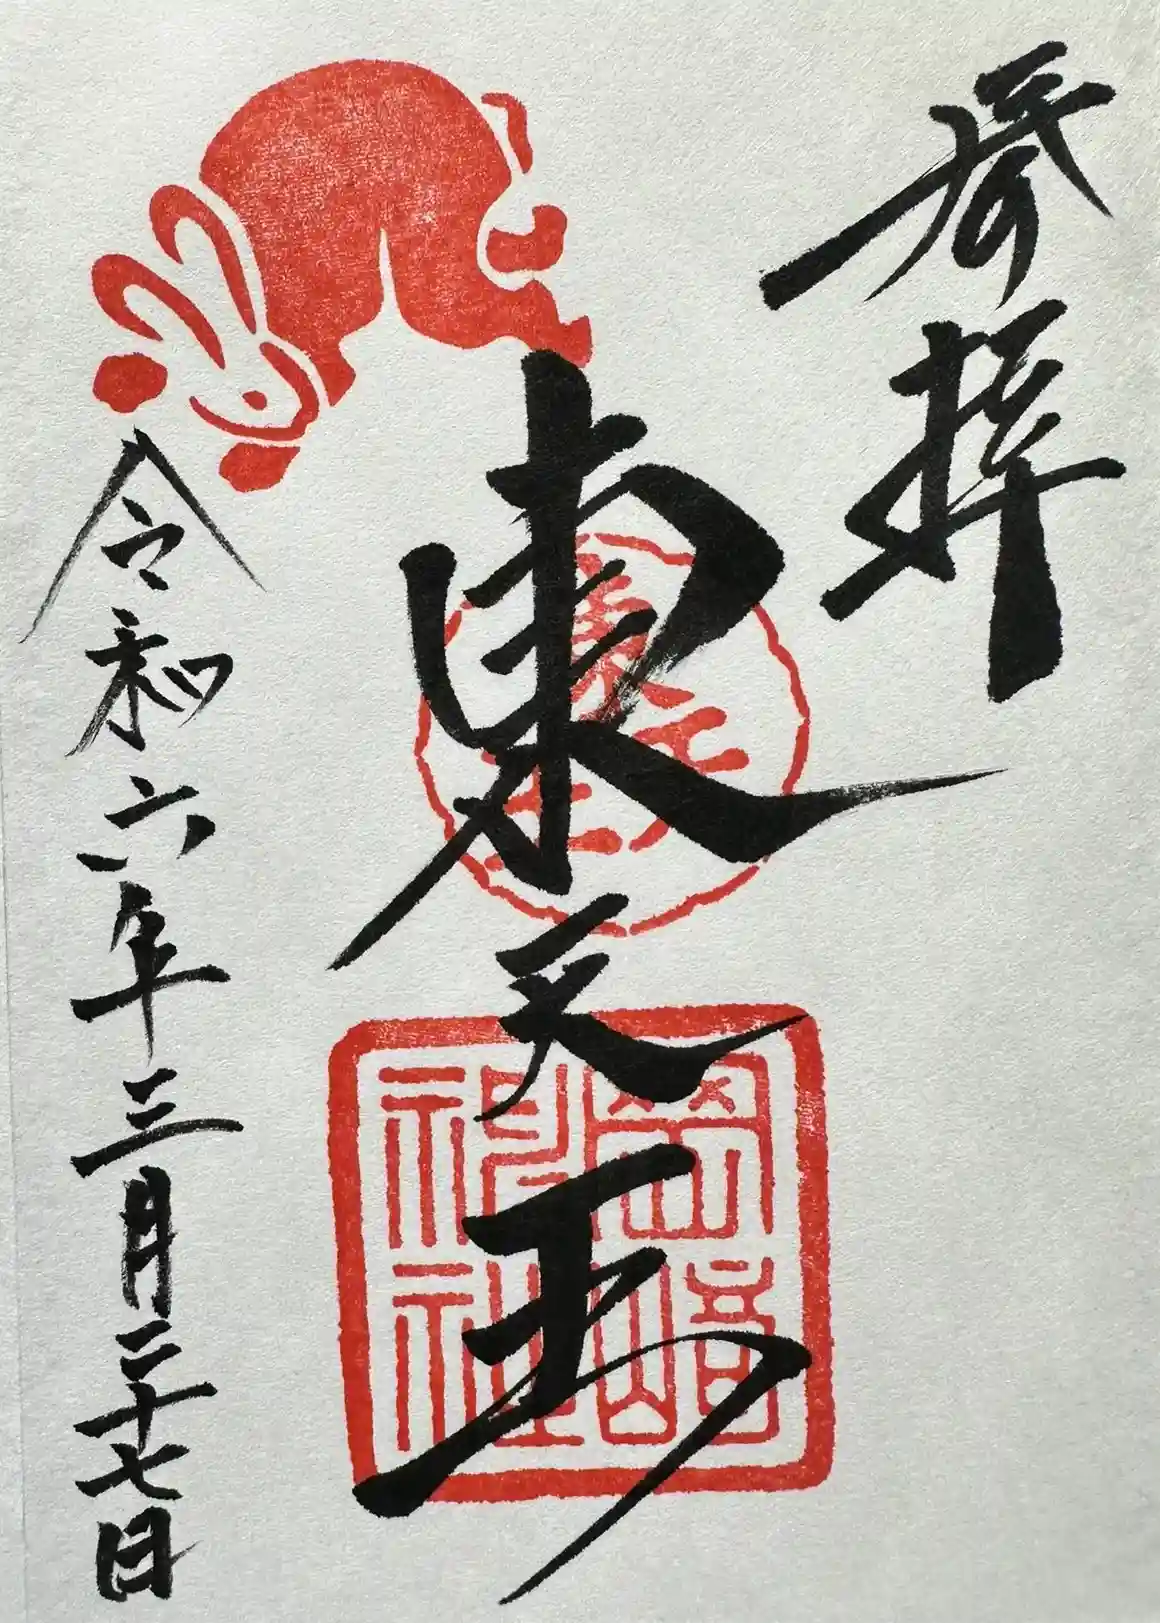 参拝
東天王
令和六年三月二十七日
東天王
岡崎
神社